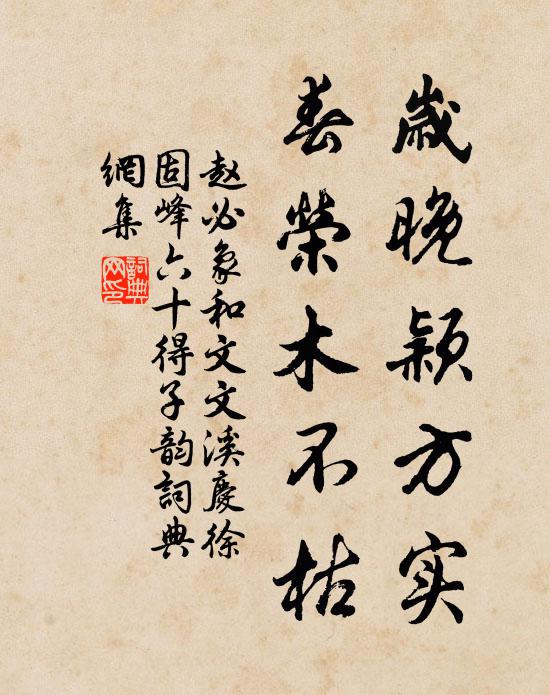 歲晚颖方实
春榮木不枯
赵必象和文文溪慶徐
固峰六十得子韵詞典
網集
詞典網印